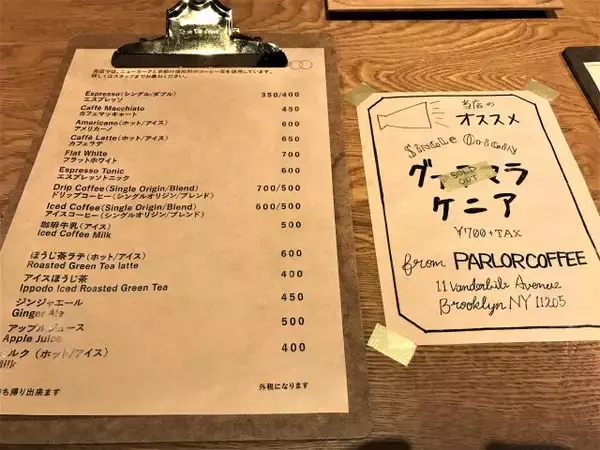 当店では、ニューヨークと京都の焙煎所のコーヒー豆を使用しています。
詳しくはスタッフまでお尋ねください。
Espresso(シングル/ダブル) 350/400
エスプレッソ
Caffè Macchiato 450
カフェマッキャート
Americano(ホット/アイス) 600
アメリカーノ
Caffè Latte(ホット/アイス) 650
カフェラテ
Flat White 700
フラットホワイト
Espresso Tonic 600
エスプレッソトニック
Drip Coffee(Single Origin/Blend) 700/500
ドリップコーヒー(シングルオリジン/ブレンド)
Iced Coffee(Single Origin/Blend) 600/500
アイスコーヒー(シングルオリジン/ブレンド)
珈琲牛乳(アイス) 500
Iced Coffee Milk
ほうじ茶ラテ(ホット/アイス) 600
Roasted Green Tea latte
アイスほうじ茶 400
Ippodo Iced Roasted Green Tea
ジンジャエール 450
Ginger Ale
アップルジュース 500
Apple Juice
ルク(ホット/アイス) 400
ilk
ち帰り出来ます 外税になります
当店の
オススメ
Single Origin
グ ラ
SOLD OUT
ケニア
¥700+TAX
from PARLORCOFFEE
11 Vanderbilt Avenue
Brooklyn NY 11205